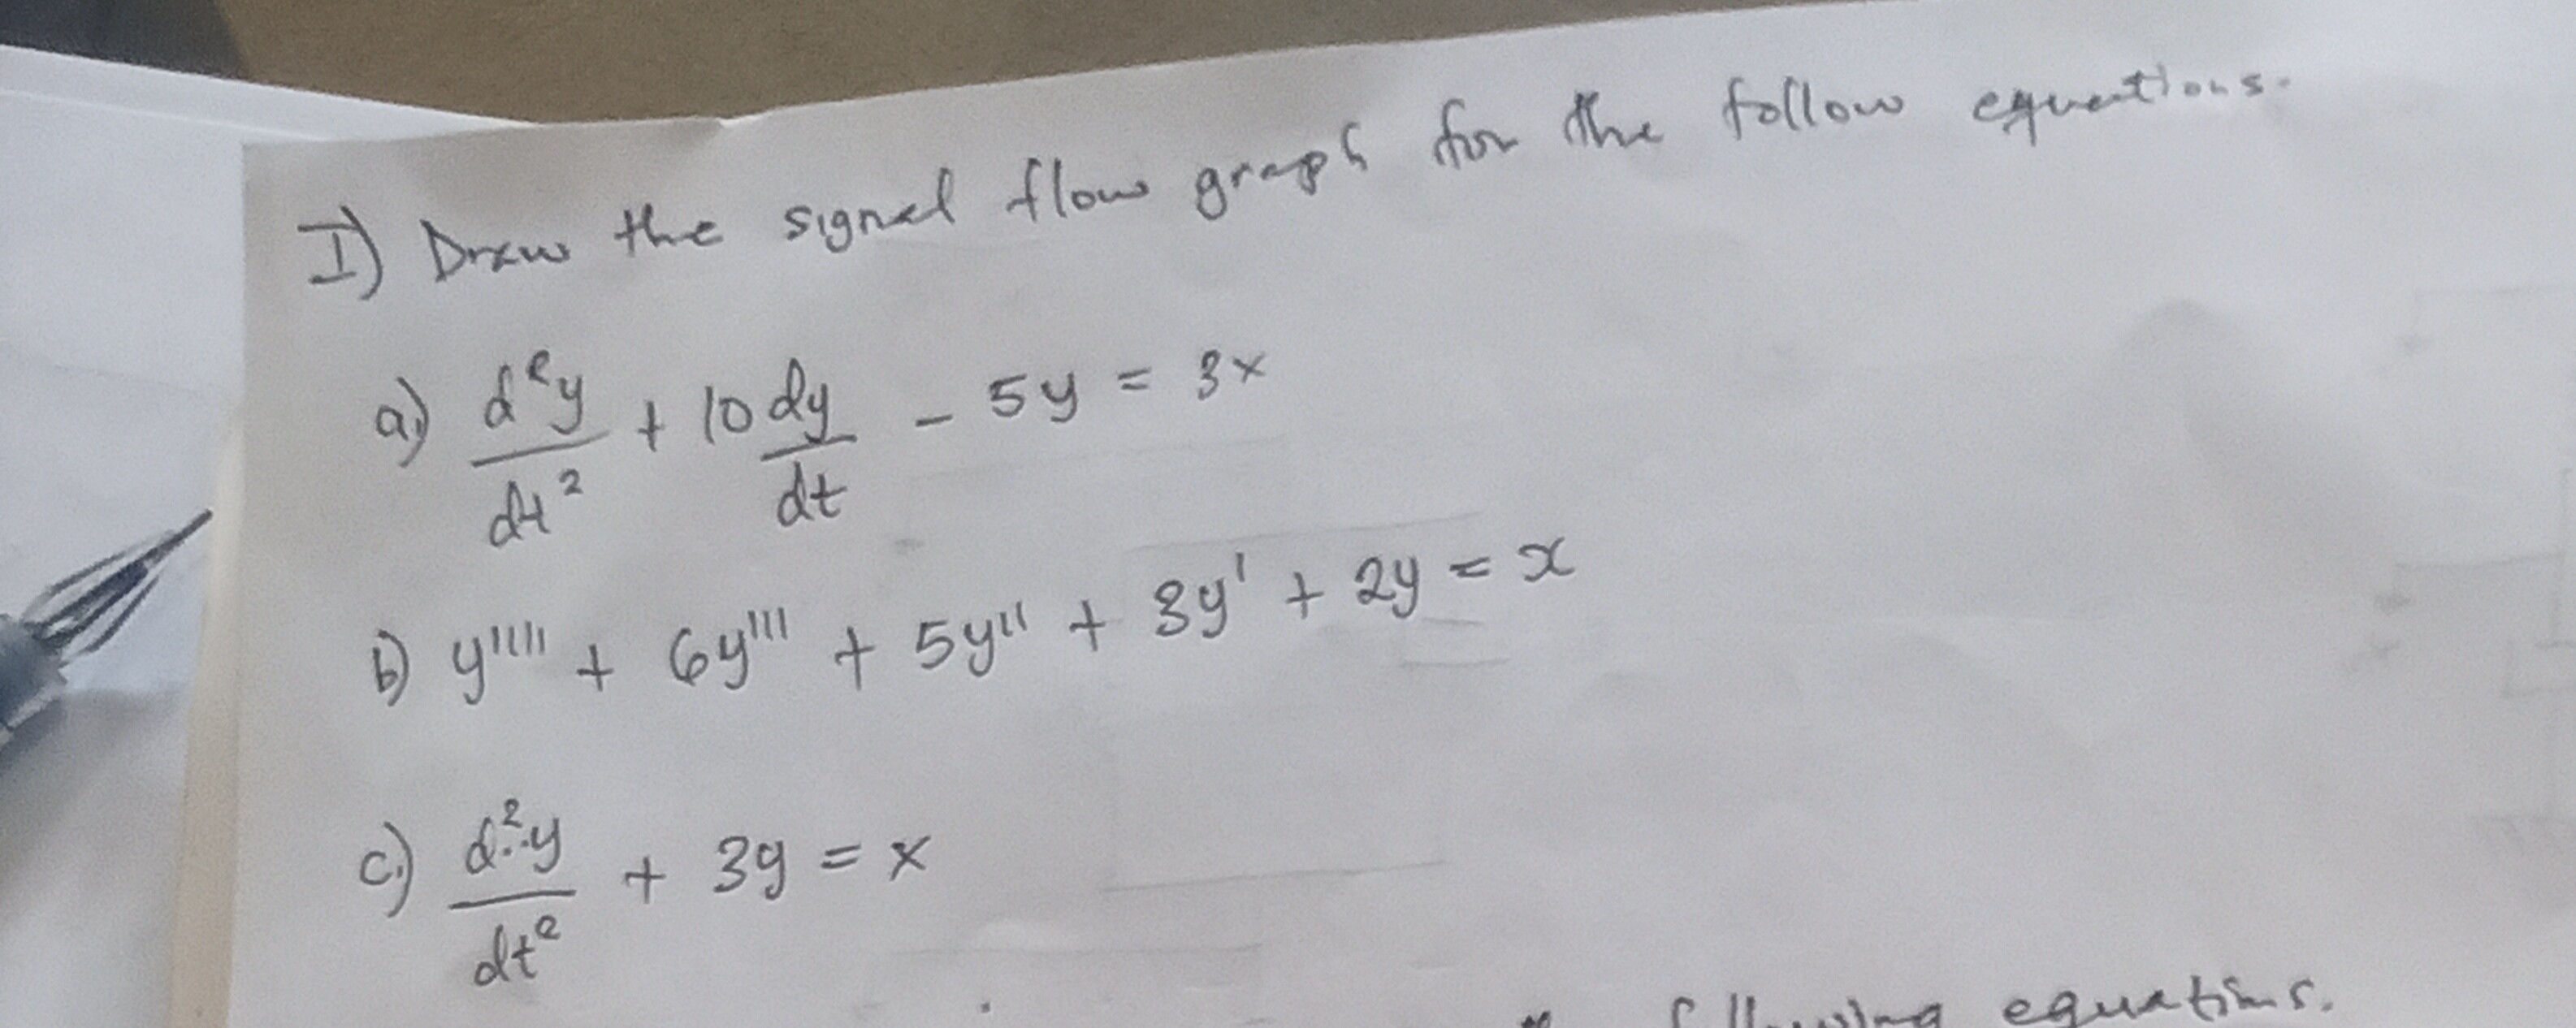 I) Draw the signal flow graph for the follow equations.
a) d²y/dt² + 10 dy/dt - 5y = 3x
b) y'''' + 6y''' + 5y'' + 3y' + 2y = x
c.) d²y/dt² + 3y = x
following equations.